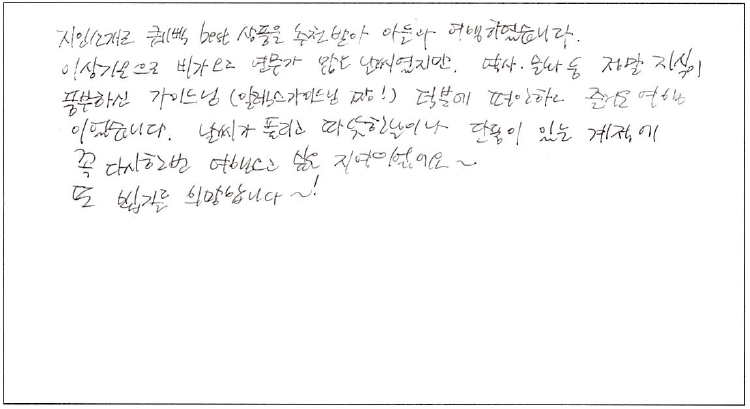 지인소개로 퀘백 best 상품을 추천받아 아들과 여행하였습니다.
이상기온으로 비가오고 안개가 많은 날씨였지만. 역사·문화 등 정말 지식이
풍부하신 가이드님 (알렉스가이드님 짱!) 덕분에 편안하고 즐거운 여행
이었습니다. 날씨가 풀리고 따뜻한날이나 단풍이 있는 계절에
꼭 다시한번 여행오고 싶은 지역이었어요~
또 뵙기를 희망합니다~!